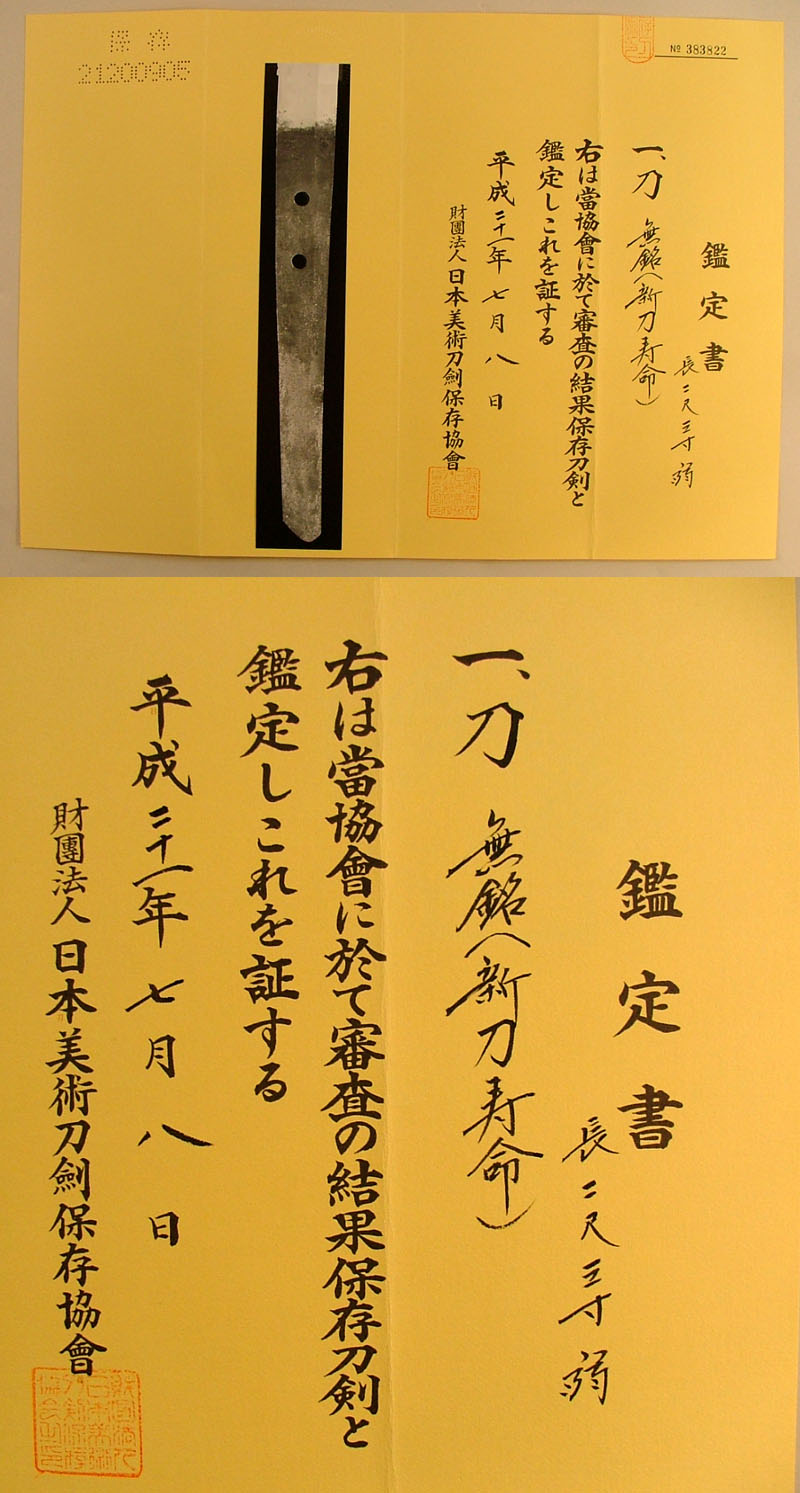 保存
21200905
№ 383822
鑑定書
長二尺三寸弱
一、刀 無銘(新刀寿命)
右は當協會に於て審査の結果保存刀剣と
鑑定しこれを証する
平成二十一年七月八日
財團法人日本美術刀劍保存協會
鑑定書
長二尺三寸弱
一、刀 無銘(新刀寿命)
右は當協會に於て審査の結果保存刀剣と
鑑定しこれを証する
平成二十一年七月八日
財團法人日本美術刀劍保存協會